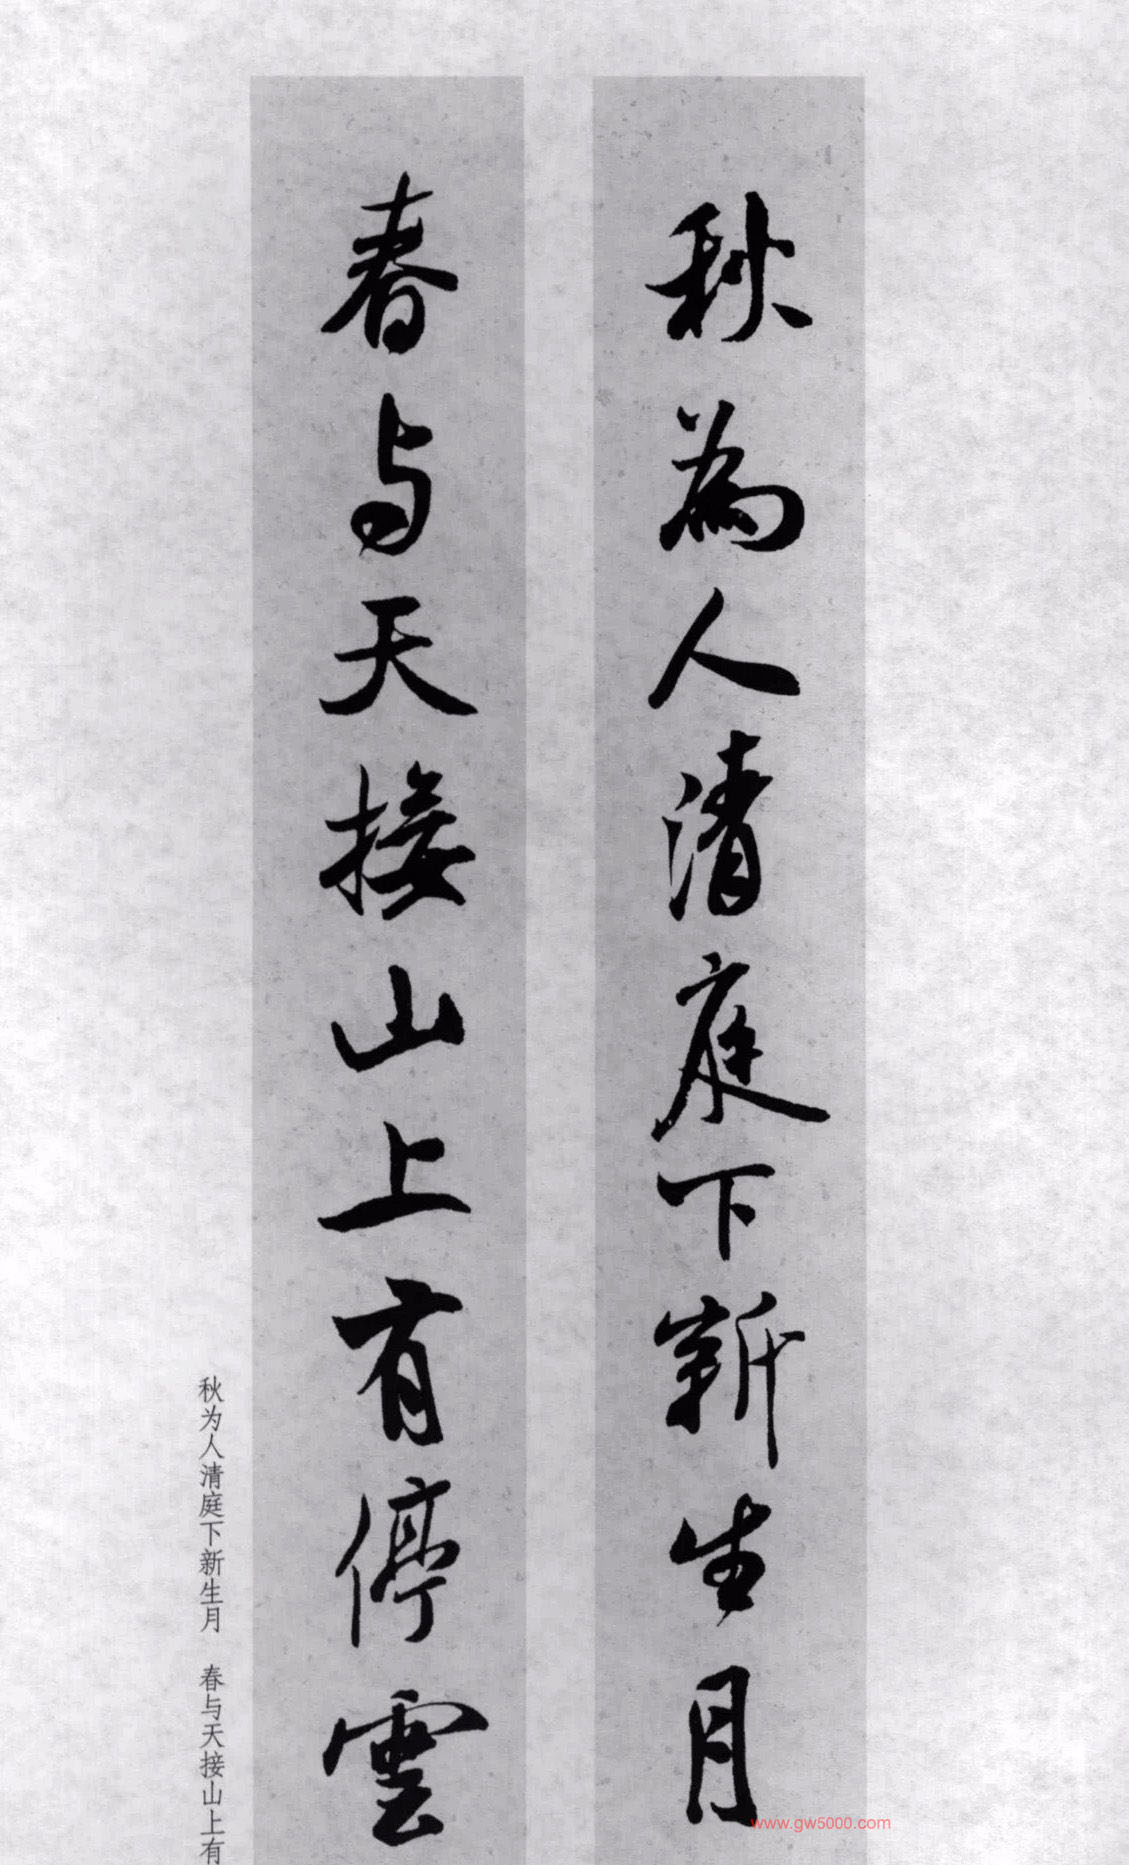 秋為人清庭下新生月
春与天接山上有停雲
秋为人清庭下新生月　春与天接山上有
www.gw5000.com